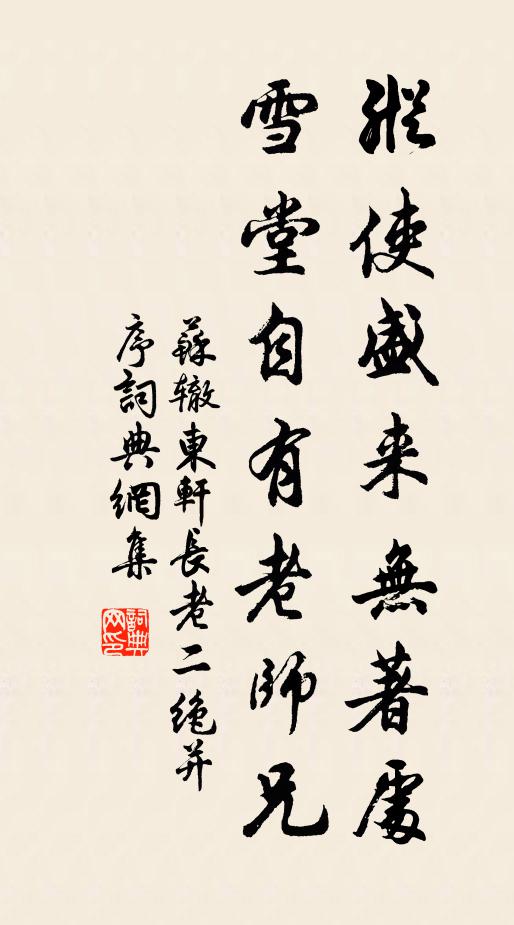 縱使盛来無著處
雪堂自有老師兄
蘇辙東軒長老二绝并
序詞典網集
詞典
网印